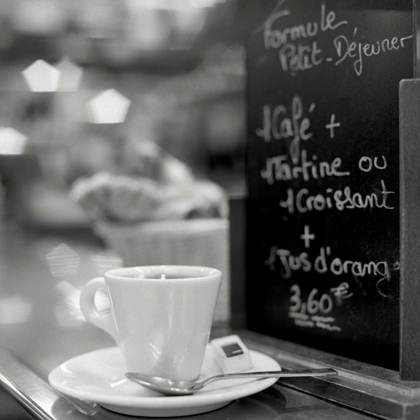 Formule
Petit-Déjeuner
1Café +
1Tartine ou
1Croissant
+
1Jus d'orang
3,60€